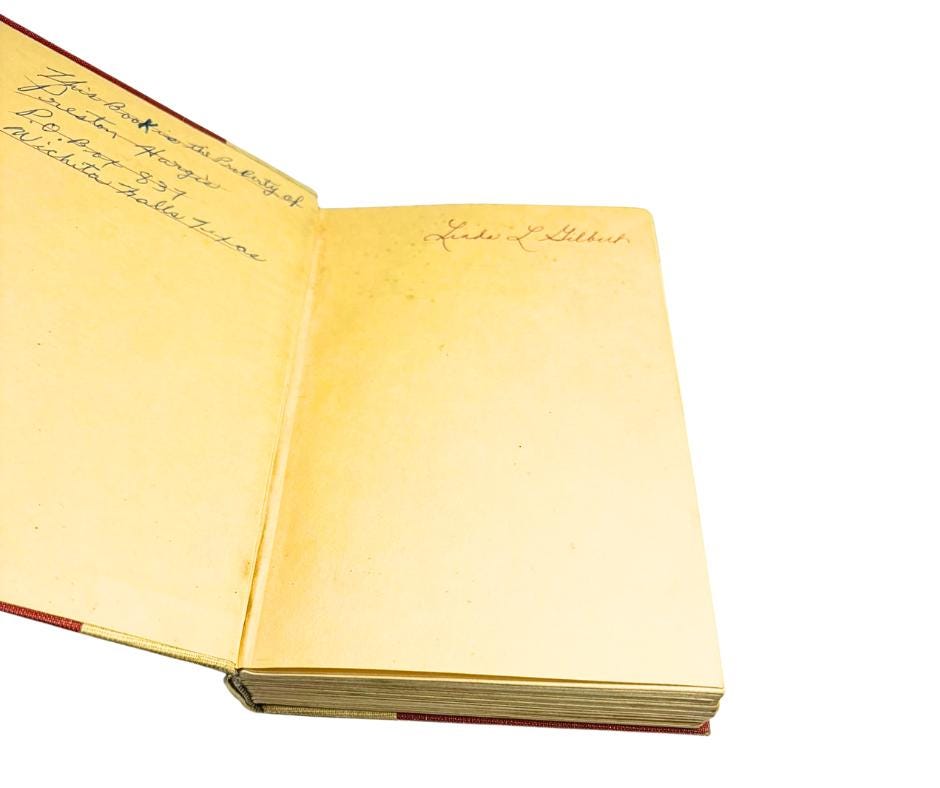 This Book is the Proberty of
Preston Hargis
P.O. Box 837
Wichita Falls Texas
Linda L Gilbert